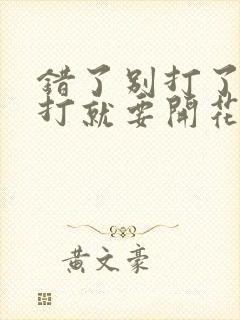 錯了别打了
打就要開花
黄文豪